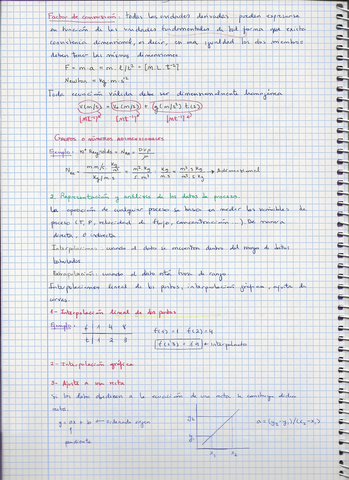 Factor de conversión: todas las unidades derivadas pueden expresarse
en función de las unidades fundamentales de tal forma que exista
consistencia dimensional, es decir, en una igualdad los dos miembros
deben tener las mismas dimensiones.
F = m·a = m·L/t² = [M.L.t⁻²]
Newton = kg·m·s⁻²
Toda ecuación válida debe ser dimensionalmente homogénea
v(m/s) = v₀(m/s) + g(m/s²) t(s)
Grupos o números adimensionales
Ejemplo: Nº Reynolds = N
→ Adimensional
2. Representación y análisis de los datos de proceso.
La operación de cualquier proceso se basa en medir las variables de
proceso (T, P, velocidad de flujo, concentración...). De manera
directa o indirecta
Interpolaciones: cuando el dato se encuentra dentro del rango de datos
tabulados
Extrapolación: cuando el dato está fuera de rango
Interpolaciones lineal de los puntos, interpolación gráfica, ajuste de
curvas.
1- Interpolación lineal de dos puntos
Ejemplo: f 1 4 8
t 1 2 3
f(1) = 1 f(2) = 4
2- Interpolación gráfica
3- Ajuste a una recta
Si los datos obedecen a la ecuación de una recta, se construye dicha
recta
y = ax + b → ordenada origen
pendiente
y₂
y₁
x₁ x₂
a = (y₂ - y₁)/(x₂ - x₁)